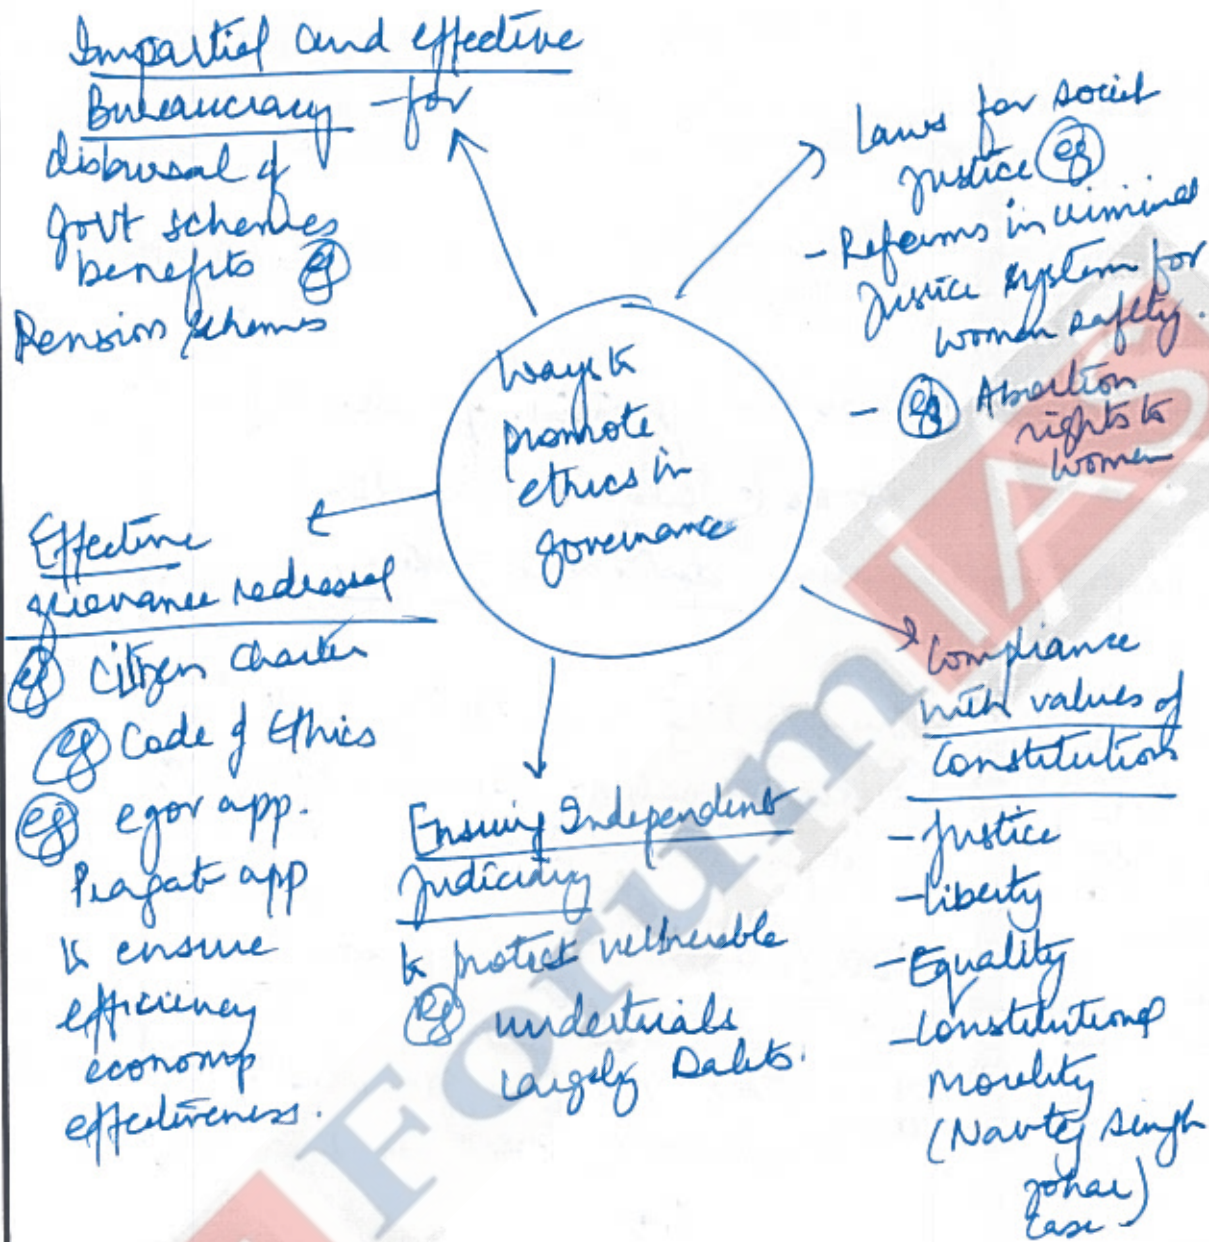 Impartial and effective
Bureaucracy - for
disbursal of
Govt schemes
benefits eg
Pension schemes
Laws for social
justice eg
- Reforms in criminal
Justice system for
women safety.
- eg Abortion
rights to
women
Ways to
promote
ethics in
governance
Effective
grievance redressal
eg Citizen Charter
eg Code of Ethics
eg egov app.
Pragati app
to ensure
efficiency
economy
effectiveness.
Ensuring Independent
Judiciary
to protect vulnerable
eg undertrials
largely Dalits.
Compliance
with values of
Constitution
- Justice
- liberty
- Equality
- Constitutional
Morality
(Navtej Singh
Johar)
case
Forum IAS